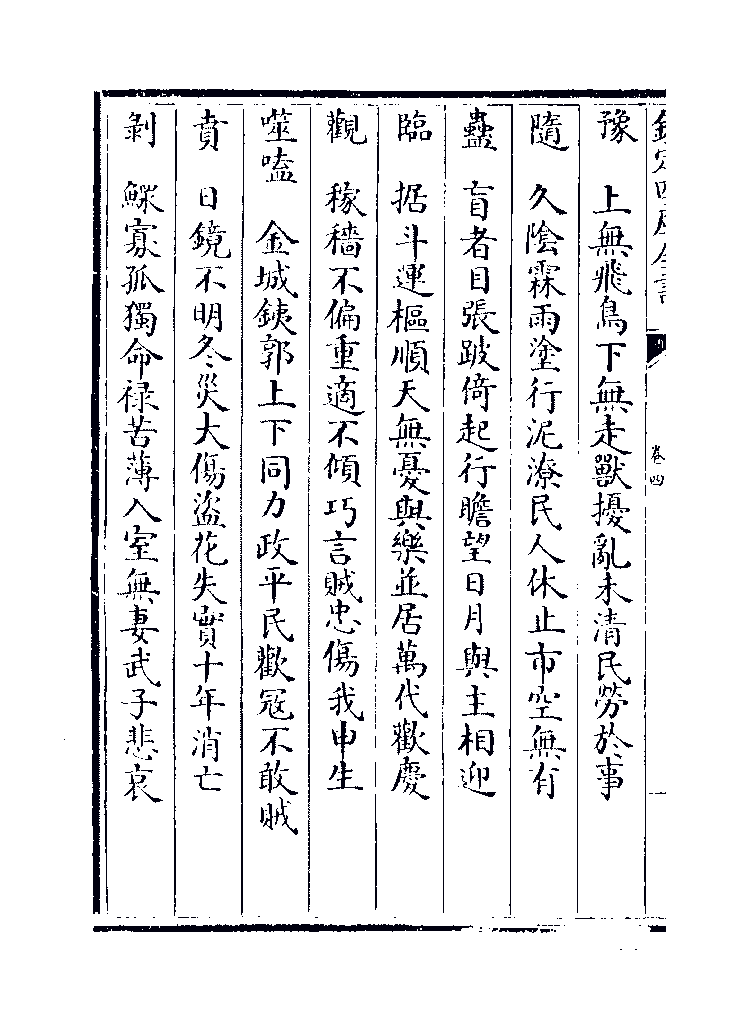 豫　上無飛鳥下無走獸擾亂未清民勞於事
隨　久陰霖雨塗行泥潦民人休止市空無有
蠱　盲者目張跛倚起行瞻望日月與主相迎
臨　据斗運樞順天無憂與樂並居萬代歡慶
觀　稼穡不偏重適不傾巧言賊忠傷我申生
噬嗑　金城鐵郭上下同力政平民歡冦不敢賊
賁　日鏡不明冬災大傷盜花失實十年消亡
剝　鰥寡孤獨命禄苦薄入室無妻武子悲哀
卷四